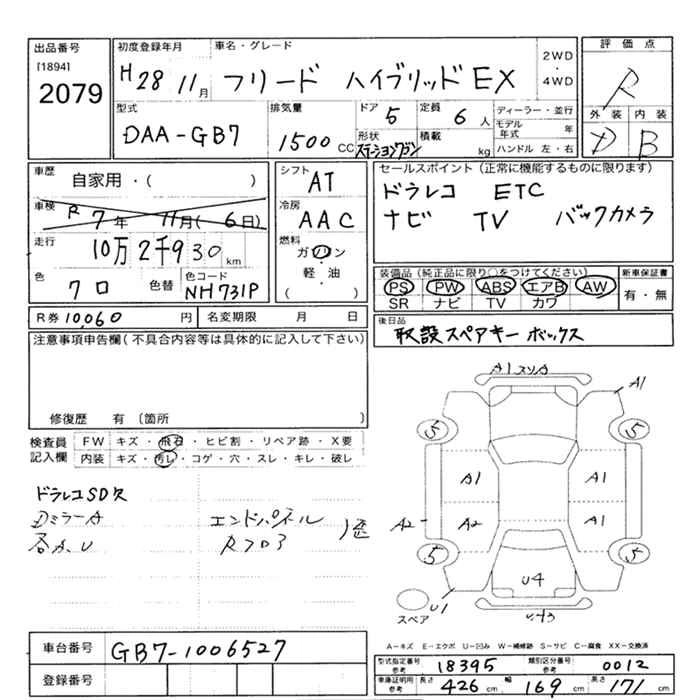 出品番号
[1894]
2079
初度登録年月
H28 11月
車名・グレード
フリード ハイブリッド EX
2WD
・
4WD
評価点
R
外装 内装
D B
型式
DAA-GB7
排気量
1500 CC
ドア 5
形状
ステーションワゴン
定員 6 人
積載 kg
ディーラー・並行
モデル年式 年
ハンドル 左・右
車歴
自家用・( )
車検
R 7年 11月(6日)
走行
10万2千930 km
色
クロ
色替
色コード
NH731P
シフト
AT
冷房
AAC
燃料
ガソリン
・
軽・油
( )
セールスポイント(正常に機能するものに限ります)
ドラレコ ETC
ナビ TV バックカメラ
装備品(純正品に限り○をつけてください)
PS PW ABS エアB AW
SR ナビ TV カワ
新車保証書
有・無
R券 10,060 円
名変期限 月 日
後日品
取説 スペアキー ボックス
注意事項申告欄(不具合内容等は具体的に記入して下さい)
修復歴 有〔箇所
検査員
記入欄
FW キズ・飛石・ヒビ割・リペア跡・X要
内装 キズ・汚レ・コゲ・穴・スレ・キレ・破レ
ドラレコSD欠
DミラーA
各A、U
エンドパネル
Rフロア
歴
A1 スリA
A1
5 5
A1 A1
A2 A2 A1
5 5
U4
U1
スペア
A-キズ E-エクボ U-凹み W-補修跡 S-サビ C-腐食 XX-交換済
車台番号
GB7-1006527
登録番号
型式指定番号
参考
18395
類別区分番号
参考
0012
車庫証明用
参考
長さ 426 cm 幅 169 cm 高さ 171 cm